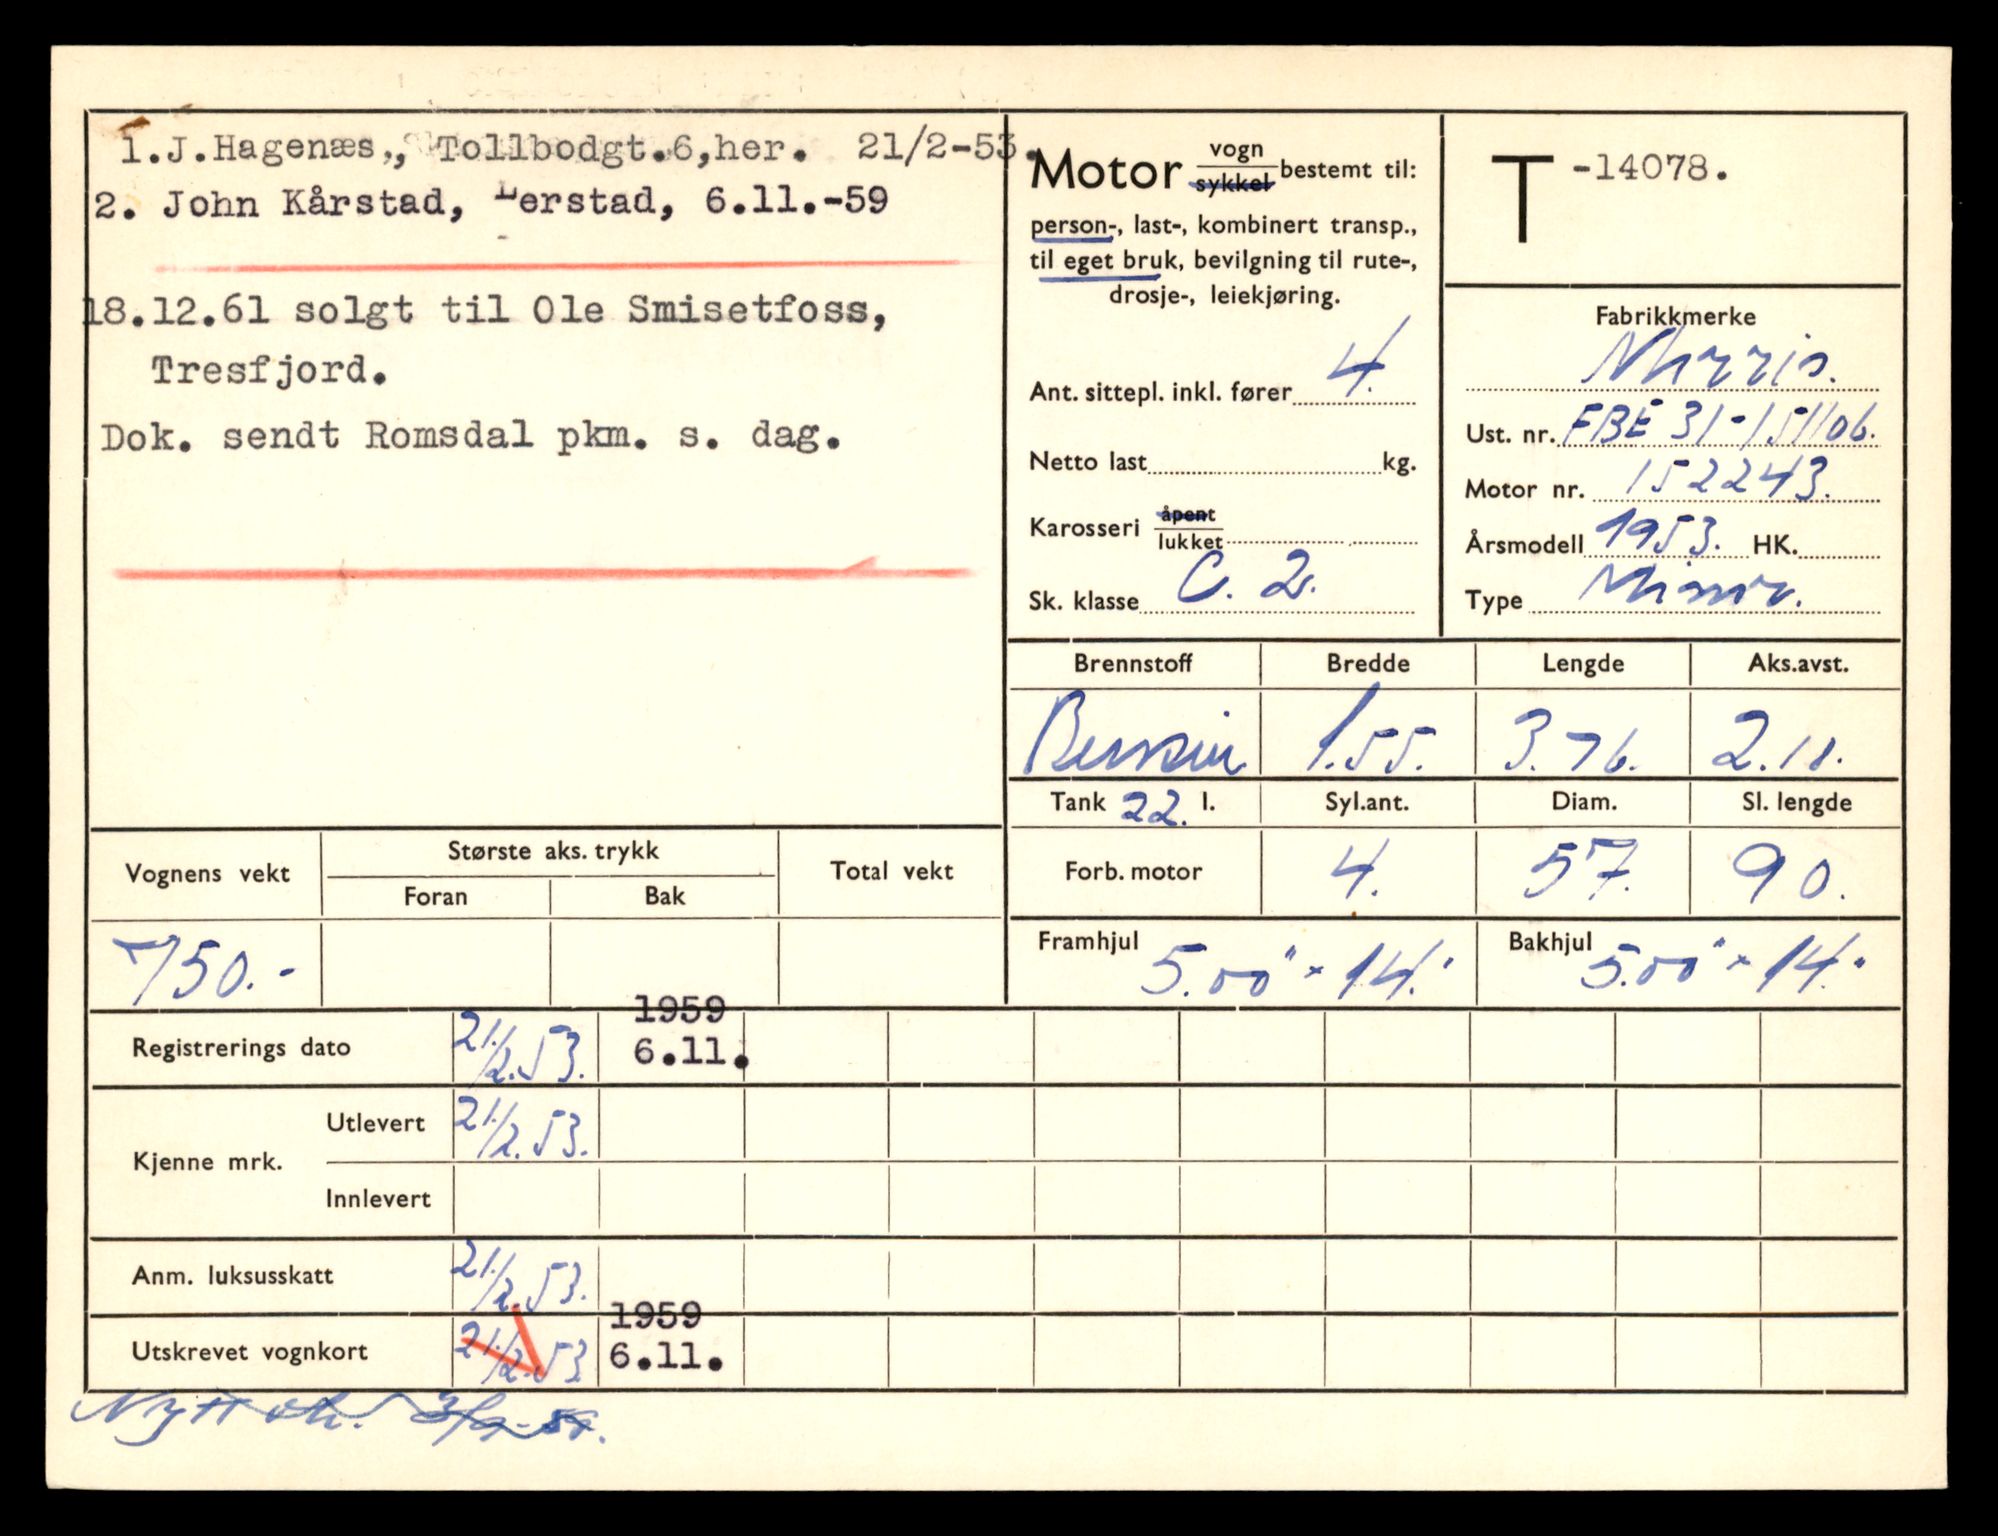 1.J.Hagenæs,, Tollbodgt.6,her. 21/2-53.
2. John Kårstad, Lerstad, 6.11.-59
18.12.61 solgt til Ole Smisetfoss,
Tresfjord.
Dok. sendt Romsdal pkm. s. dag.
Motor vogn sykkel bestemt til:
person-, last-, kombinert transp.,
til eget bruk, bevilgning til rute-,
drosje-, leiekjøring.
Ant. sittepl. inkl. fører 4.
Netto last kg.
Karosseri åpent lukket
Sk. klasse C. 2.
T -14078.
Fabrikkmerke
Morris.
Ust. nr. FBE 31-151106.
Motor nr. 152243.
Årsmodell 1953. HK.
Type Minor.
Brennstoff Bredde Lengde Aks.avst.
Bensin 1.55. 3.76. 2.18.
Tank 22. l. Syl.ant. Diam. Sl. lengde
Forb. motor 4. 57. 90.
Framhjul 5.00" × 14." Bakhjul 5.00" × 14."
Vognens vekt Største aks. trykk Total vekt
Foran Bak
750.-
Registrerings dato 21/2.53. 1959 6.11.
Kjenne mrk. Utlevert 21/2.53.
Innlevert
Anm. luksusskatt 21/2.53.
Utskrevet vognkort 21/2.53 1959 6.11.
Nytt